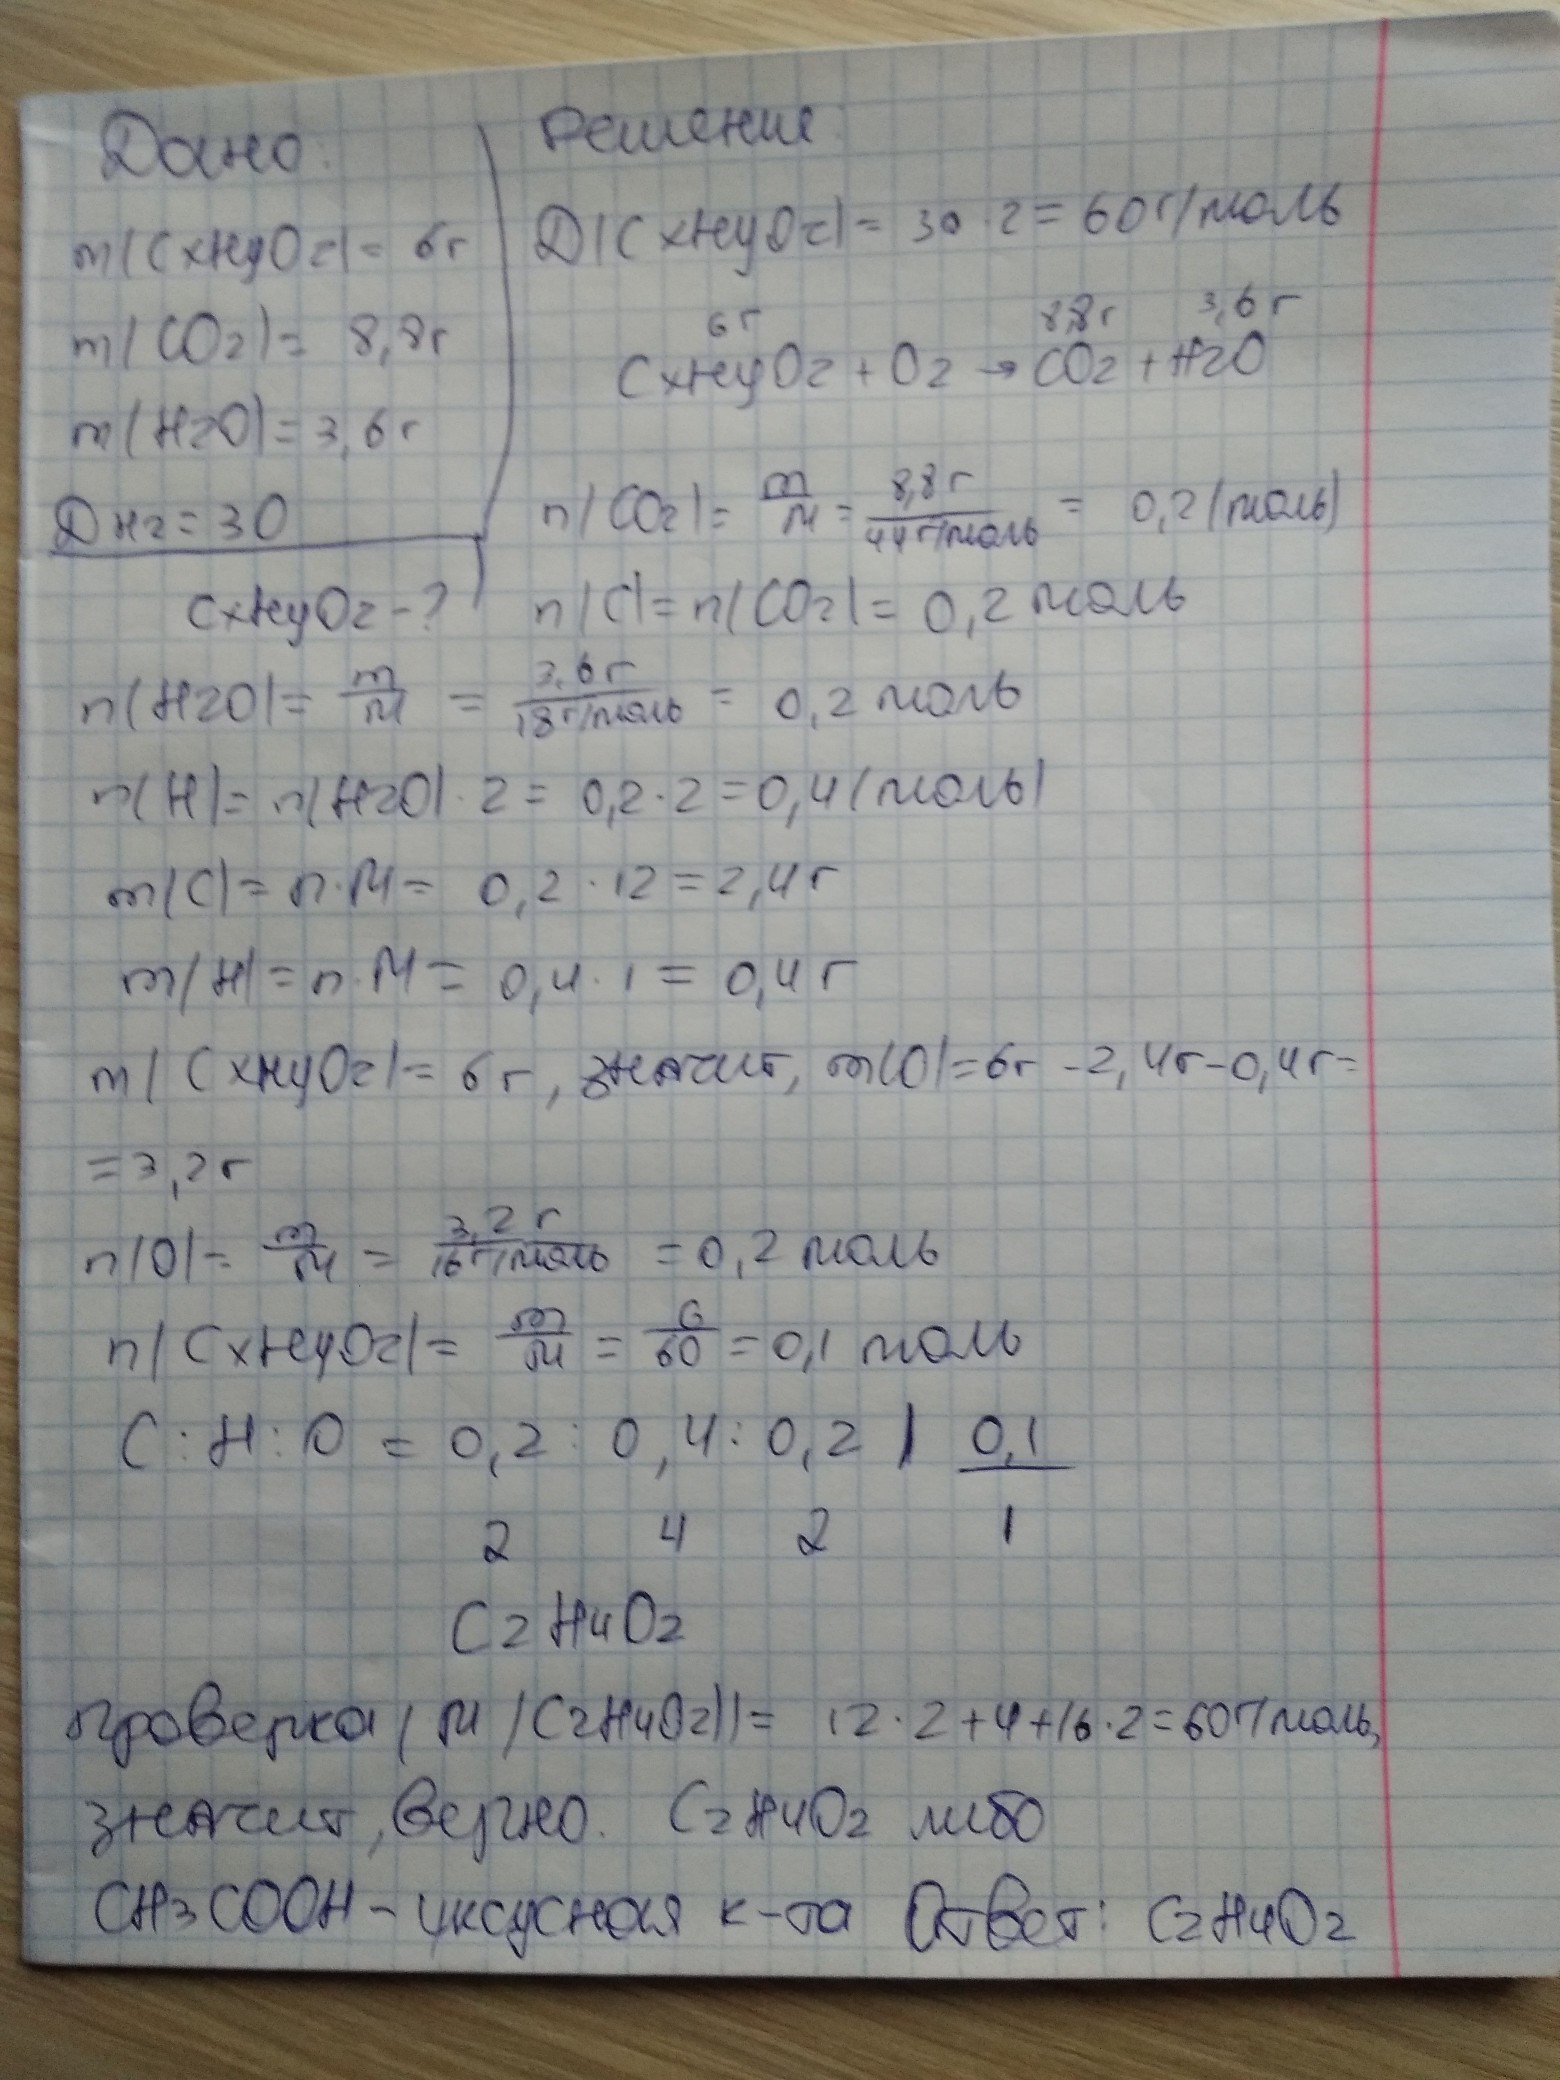 Дано:
m(CxHyOz)= 6г
m(CO2)= 8,8г
m(H2O)=3,6г
Dн2=30
CxHyOz-?
Решение:
D(CxHyOz)= 30·2=60г/моль
6г 8,8г 3,6г
CxHyOz+O2→CO2+H2O
n(CO2)= m/M = 8,8г/44г/моль = 0,2(моль)
n(C)=n(CO2)= 0,2 моль
n(H2O)= m/M = 3,6г/18г/моль = 0,2 моль
n(H)= n(H2O)·2= 0,2·2=0,4(моль)
m(C)= n·M= 0,2·12=2,4г
m(H)=n·M= 0,4·1= 0,4г
m(CxHyOz)= 6г, значит, m(O)=6г-2,4г-0,4г=
=3,2г
n(O)= m/M = 3,2г/16г/моль =0,2 моль
n(CxHyOz)= m/M = 6/60 =0,1 моль
C:H:O = 0,2:0,4:0,2 | 0,1
2 4 2 1
C2H4O2
проверка(M(C2H4O2))= 12·2+4+16·2=60г/моль,
значит, верно. C2H4O2 либо
CH3COOH-уксусная к-та Ответ: C2H4O2